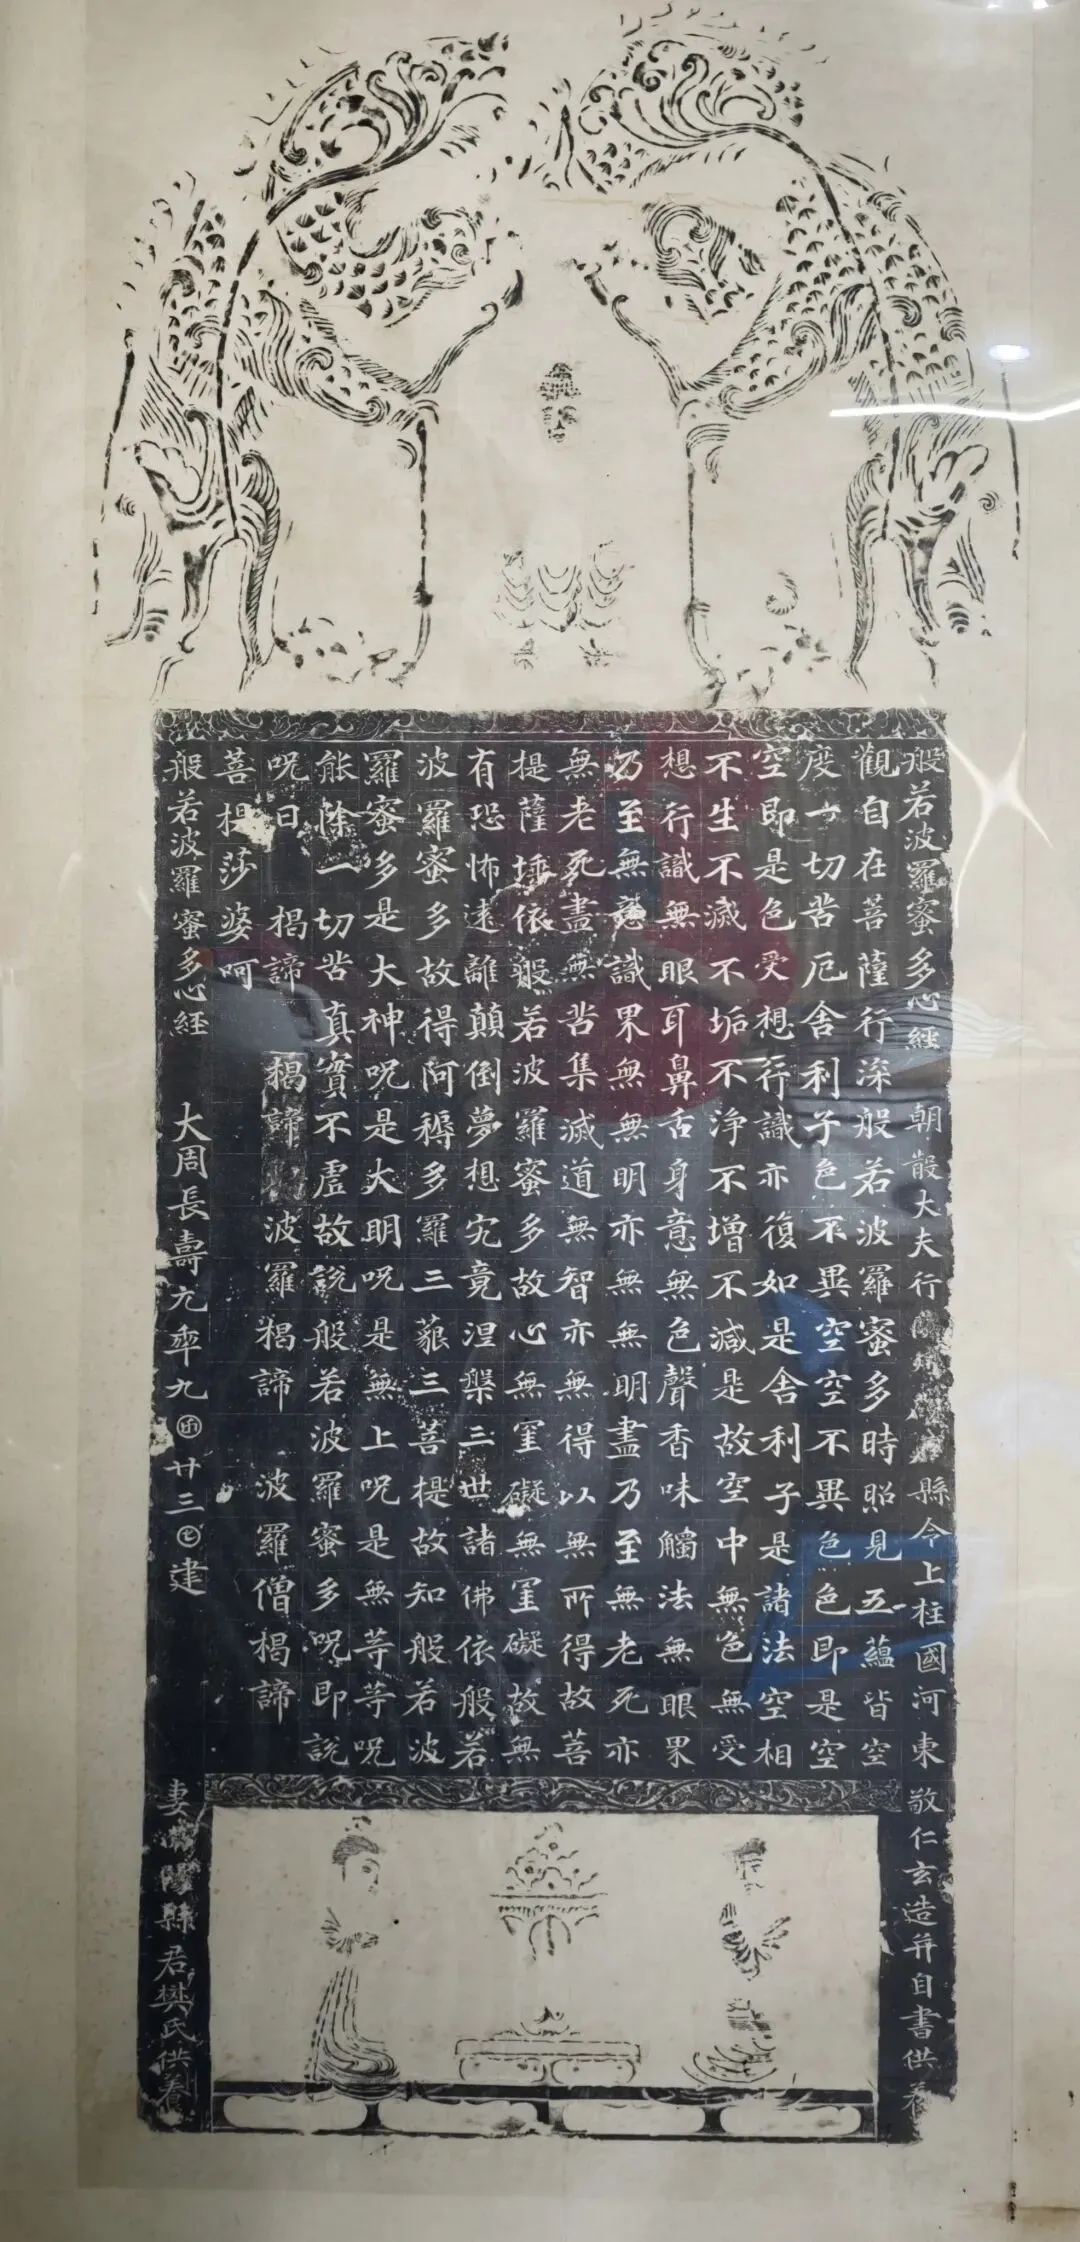 般若波羅蜜多心經 朝散大夫行 縣令上柱國河東 敬仁玄造并自書供養
觀自在菩薩行深般若波羅蜜多時昭見五蘊皆空
度一切苦厄舍利子色不異空空不異色色即是空
空即是色受想行識亦復如是舍利子是諸法空相
不生不滅不垢不淨不增不減是故空中無色無受
想行識無眼耳鼻舌身意無色聲香味觸法無眼界
乃至無意識界無無明亦無無明盡乃至無老死亦
無老死盡無苦集滅道無智亦無得以無所得故菩
提薩埵依般若波羅蜜多故心無罣礙無罣礙故無
有恐怖遠離顛倒夢想究竟涅槃三世諸佛依般若
波羅蜜多故得阿耨多羅三藐三菩提故知般若波
羅蜜多是大神呪是大明呪是無上呪是無等等呪
能除一切苦真實不虛故說般若波羅蜜多呪即說
呪曰 楬諦 楬諦 波羅楬諦 波羅僧楬諦
菩提莎婆呵
般若波羅蜜多心經 大周長壽元年九𠥱廿三𡆠建 妻 縣君樊氏供養